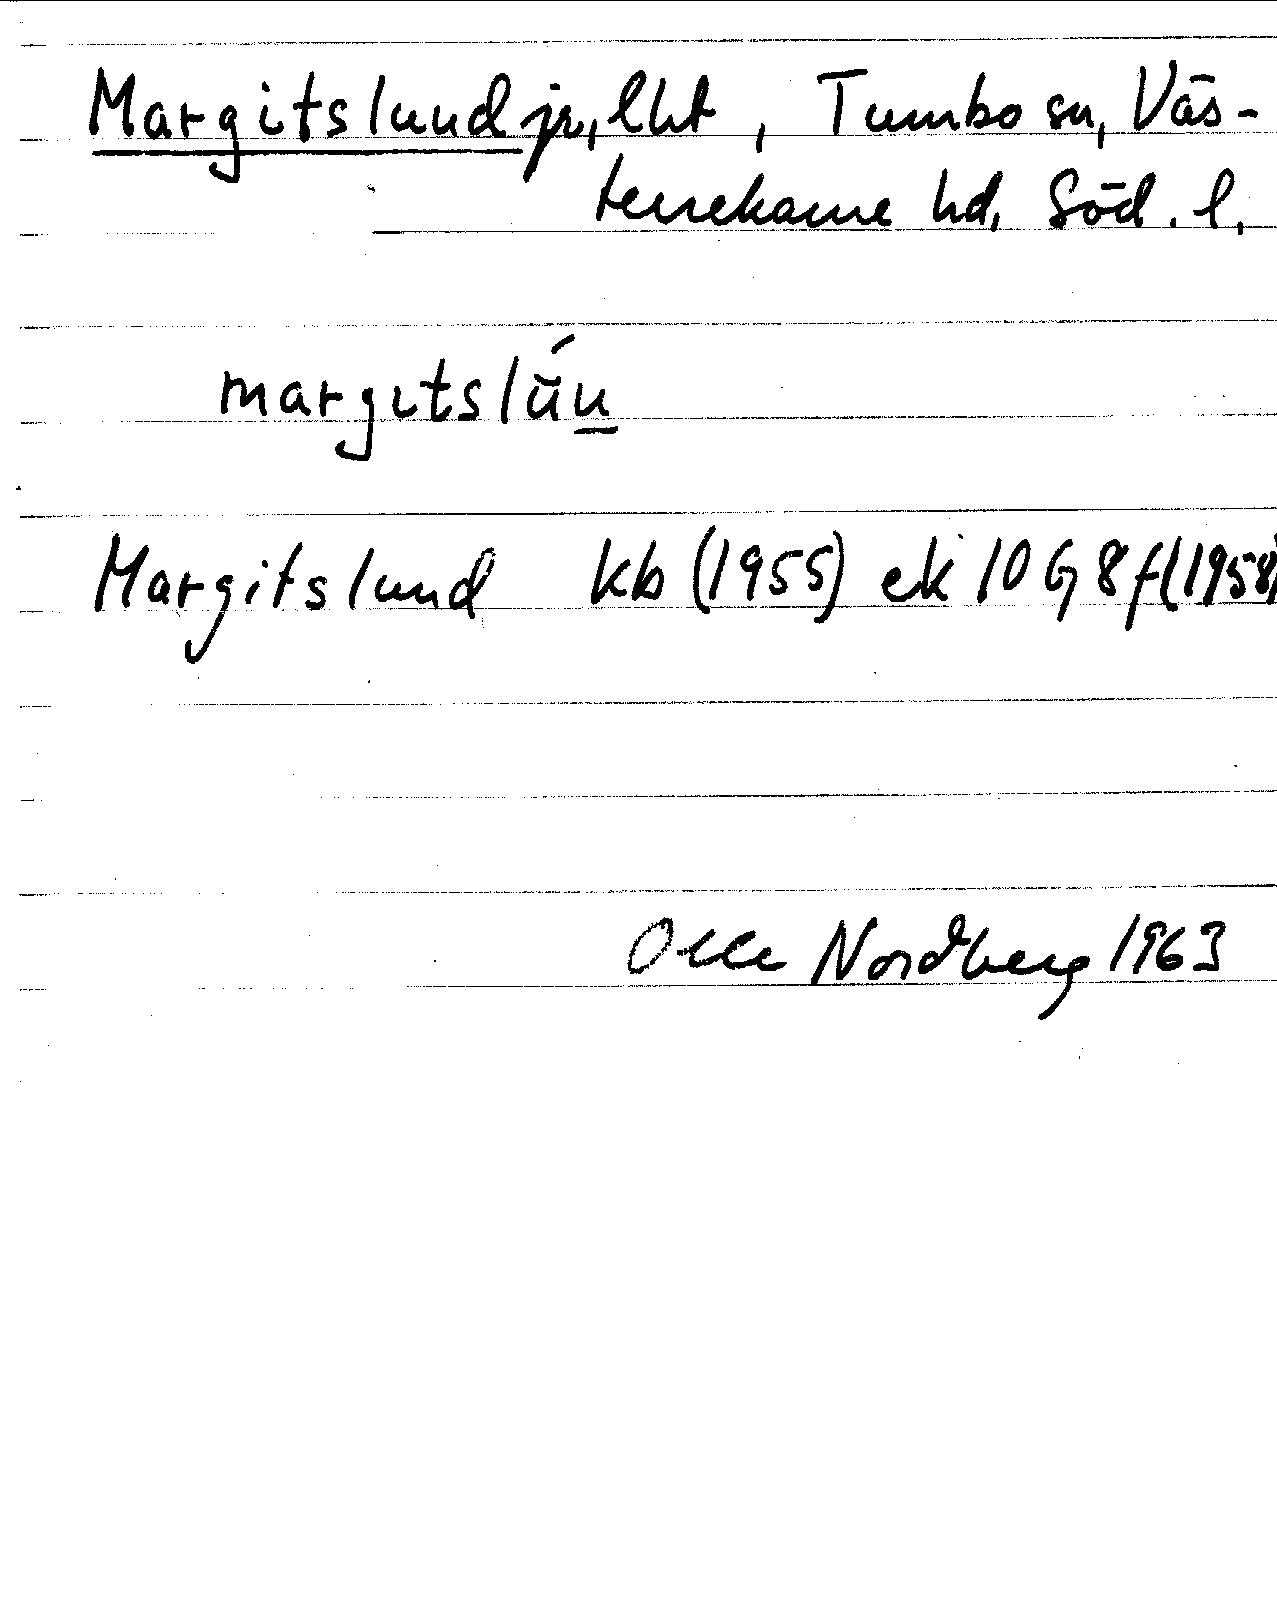 Margitslund jr, lht, Tumbo sn, Väs-
terrekarne hd, Söd. l.
margɩtslŭ́n
Margitslund kb (1955) ek 10G 8f (1958)
Olle Nordberg 1963